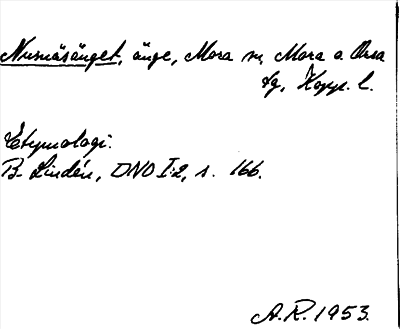 Nusnäsänget, änge, Mora sn, Mora o. Orsa
tg, Kopp. l.
Etymologi:
B. Lindén, DNO I:2, s. 166.
A.R. 1953.